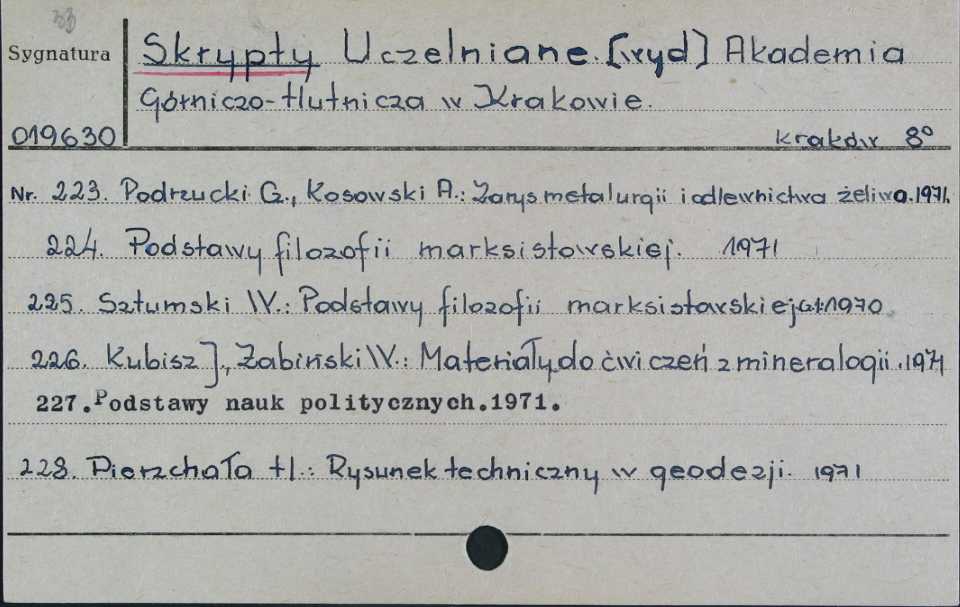 Sygnatura
Skrypty Uczelniane. [wyd] Akademia
Górniczo-Hutnicza w Krakowie.
019630
Kraków 8°
Nr. 223. Podrzucki C., Kosowski A.: Zarys metalurgii i odlewnictwa żeliwa. 1971.
224. Podstawy filozofii marksistowskiej. 1971
225. Sztumski W.: Podstawy filozofii marksistowskiej 1970.
226. Kubisz J., Żabiński W.: Materiały do ćwiczeń z mineralogii. 1971
227. Podstawy nauk politycznych. 1971.
228. Pierzchała H.: Rysunek techniczny w geodezji. 1971